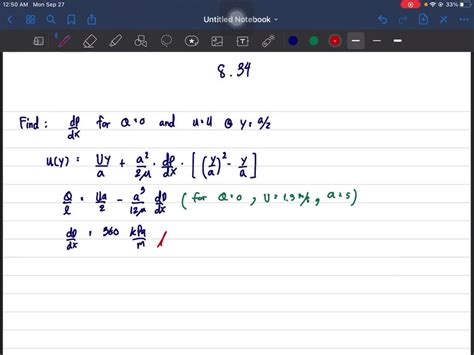 12:50 AM Mon Sep 27
33%
Untitled Notebook
8.34
Find : dp/dx for Q=0 and u=U @ y=a/2
u(y) = Uy/a + a²/2μ · dp/dx · [(y/a)² - y/a]
Q/l = Ua/2 - a³/12μ dp/dx (for Q=0, U=1.3 m/s, a=5)
dp/dx = 360 kPa/m